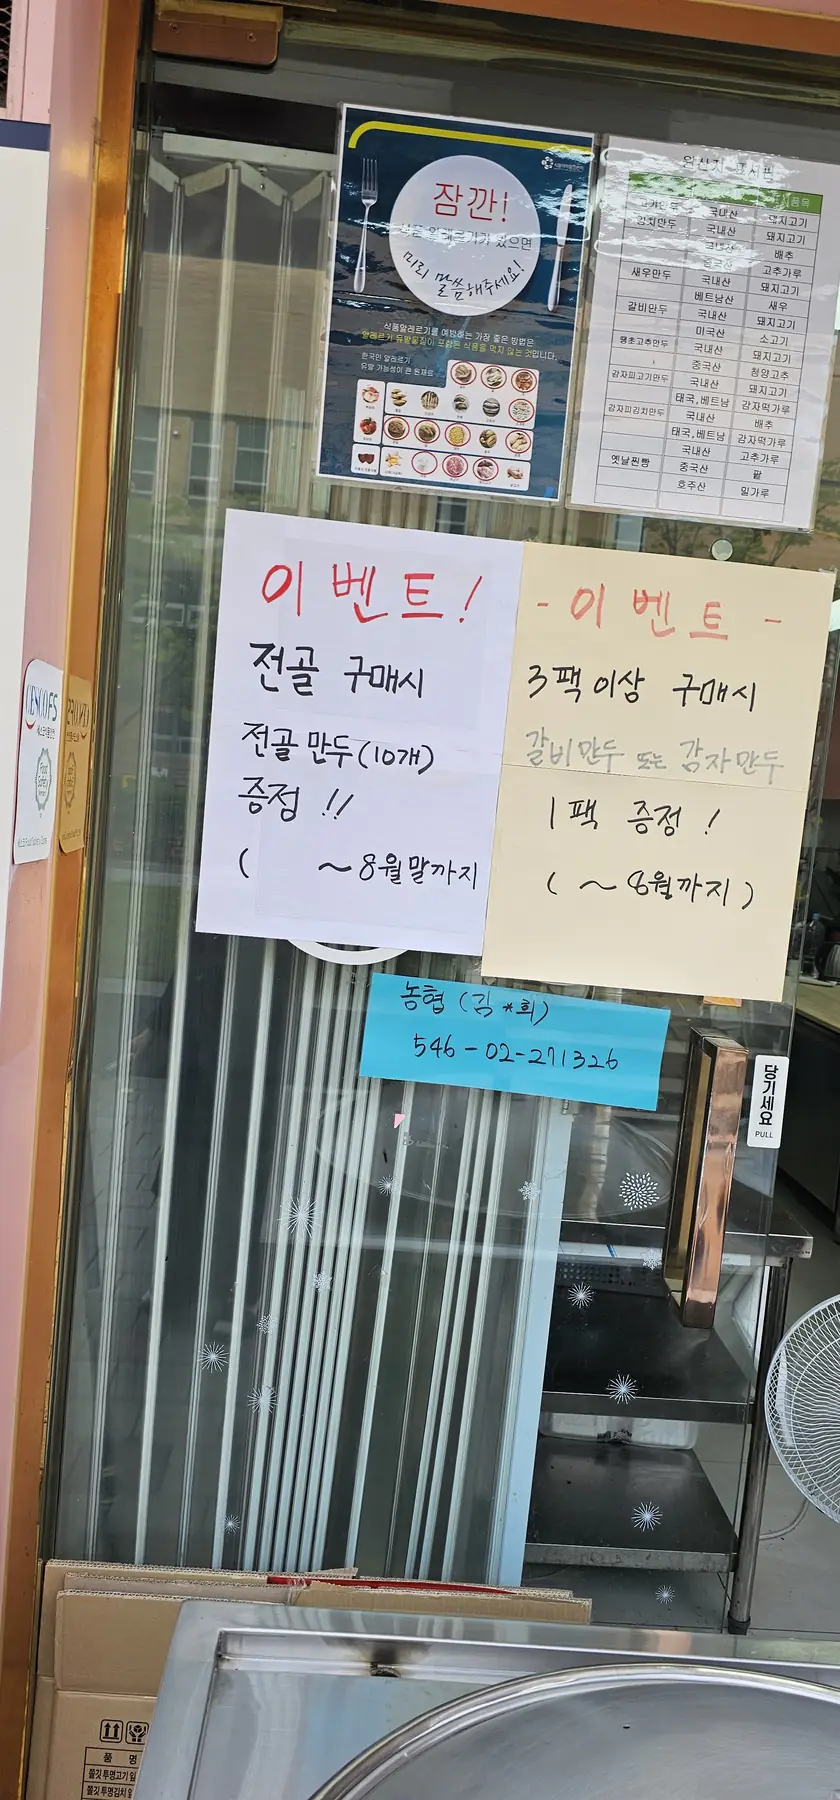 잠깐!
식품 알레르기가 있으면
미리 말씀해주세요!
식품알레르기를 예방하는 가장 좋은 방법은
알레르기 유발물질이 포함된 식품을 먹지 않는 것입니다.
한국인 알레르기
유발 가능성이 큰 원재료
원산지 표시판
품목
고기만두 국내산 돼지고기
김치만두 국내산 돼지고기
국내산 배추
중국산 고추가루
새우만두 국내산 돼지고기
베트남산 새우
갈비만두 국내산 돼지고기
미국산 소고기
땡초고추만두 국내산 돼지고기
중국산 청양고추
감자피고기만두 국내산 돼지고기
태국,베트남 감자떡가루
감자피김치만두 국내산 배추
태국,베트남 감자떡가루
국내산 고추가루
옛날찐빵 중국산 팥
호주산 밀가루
이벤트!
전골 구매시
전골만두(10개)
증정 !!
( ~8월말까지
- 이벤트 -
3팩이상 구매시
갈비만두 또는 감자만두
1팩 증정!
( ~ 8월까지)
농협 (김*희)
546-02-271326
당기세요
PULL
CESCO FS
Food
Safety
품 명
쫄깃투명고기
쫄깃투명김치